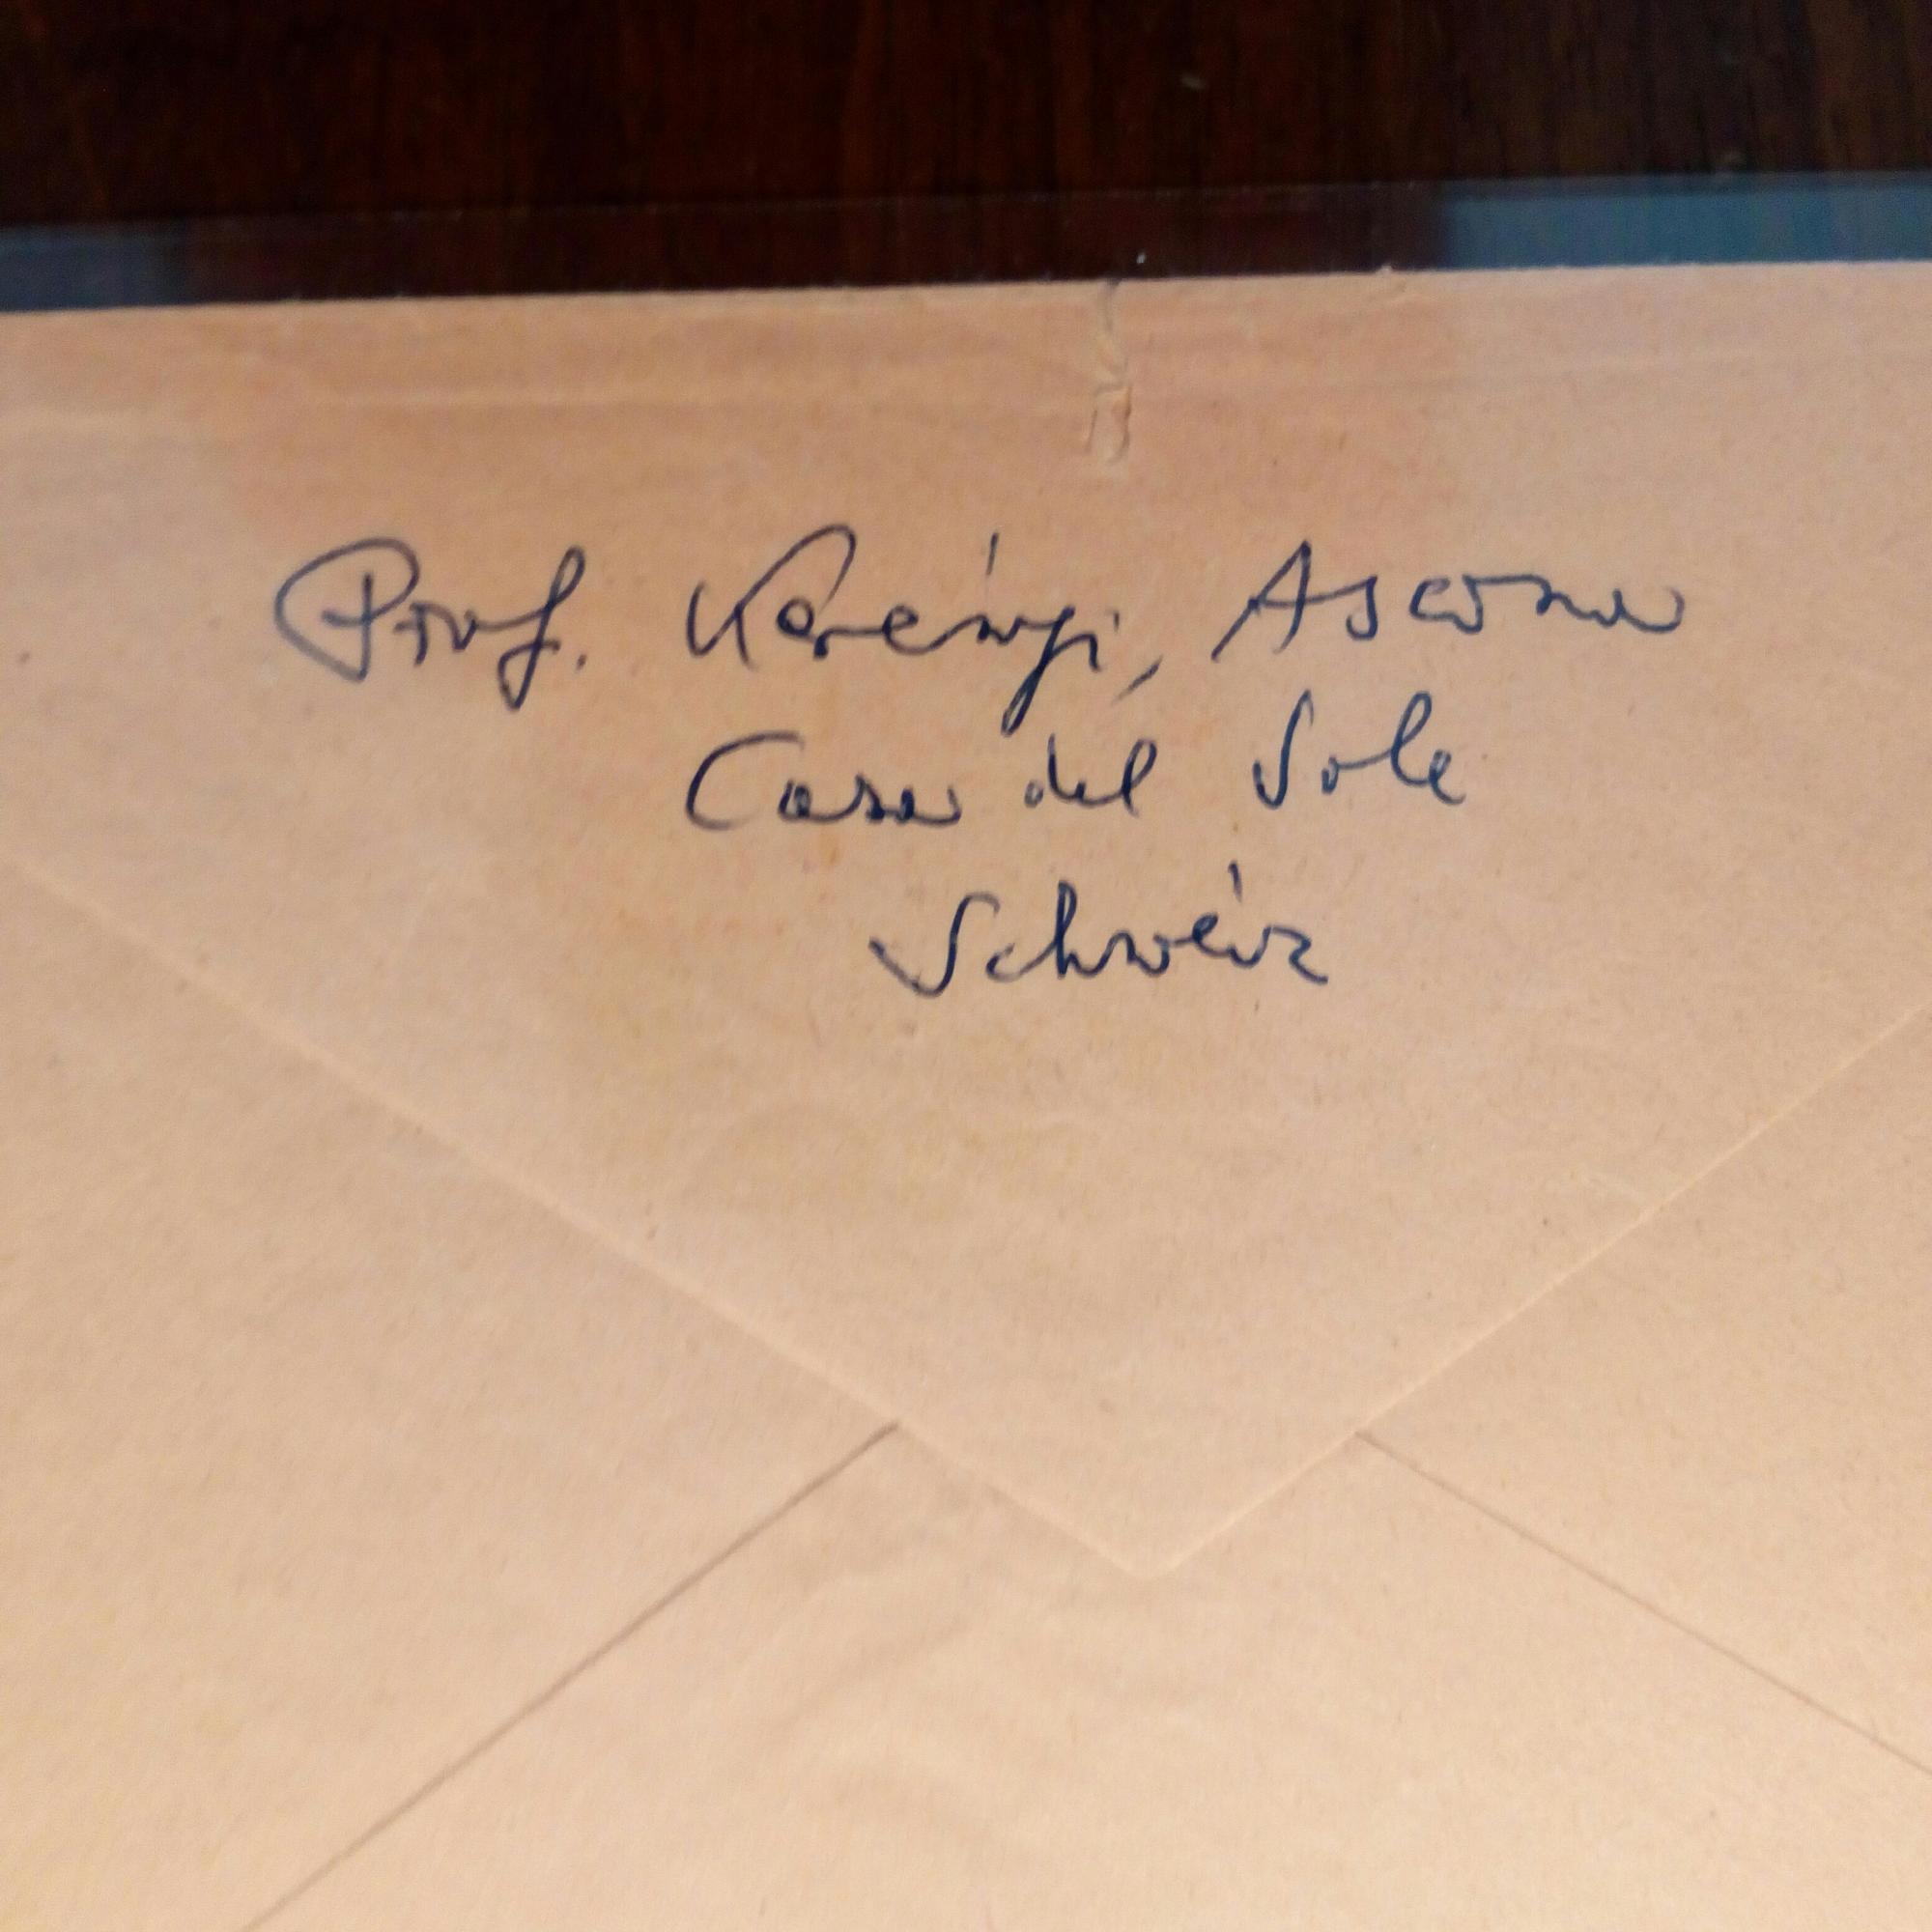 Prof. Kerényi, Ascona
Casa del Sole
Schweiz